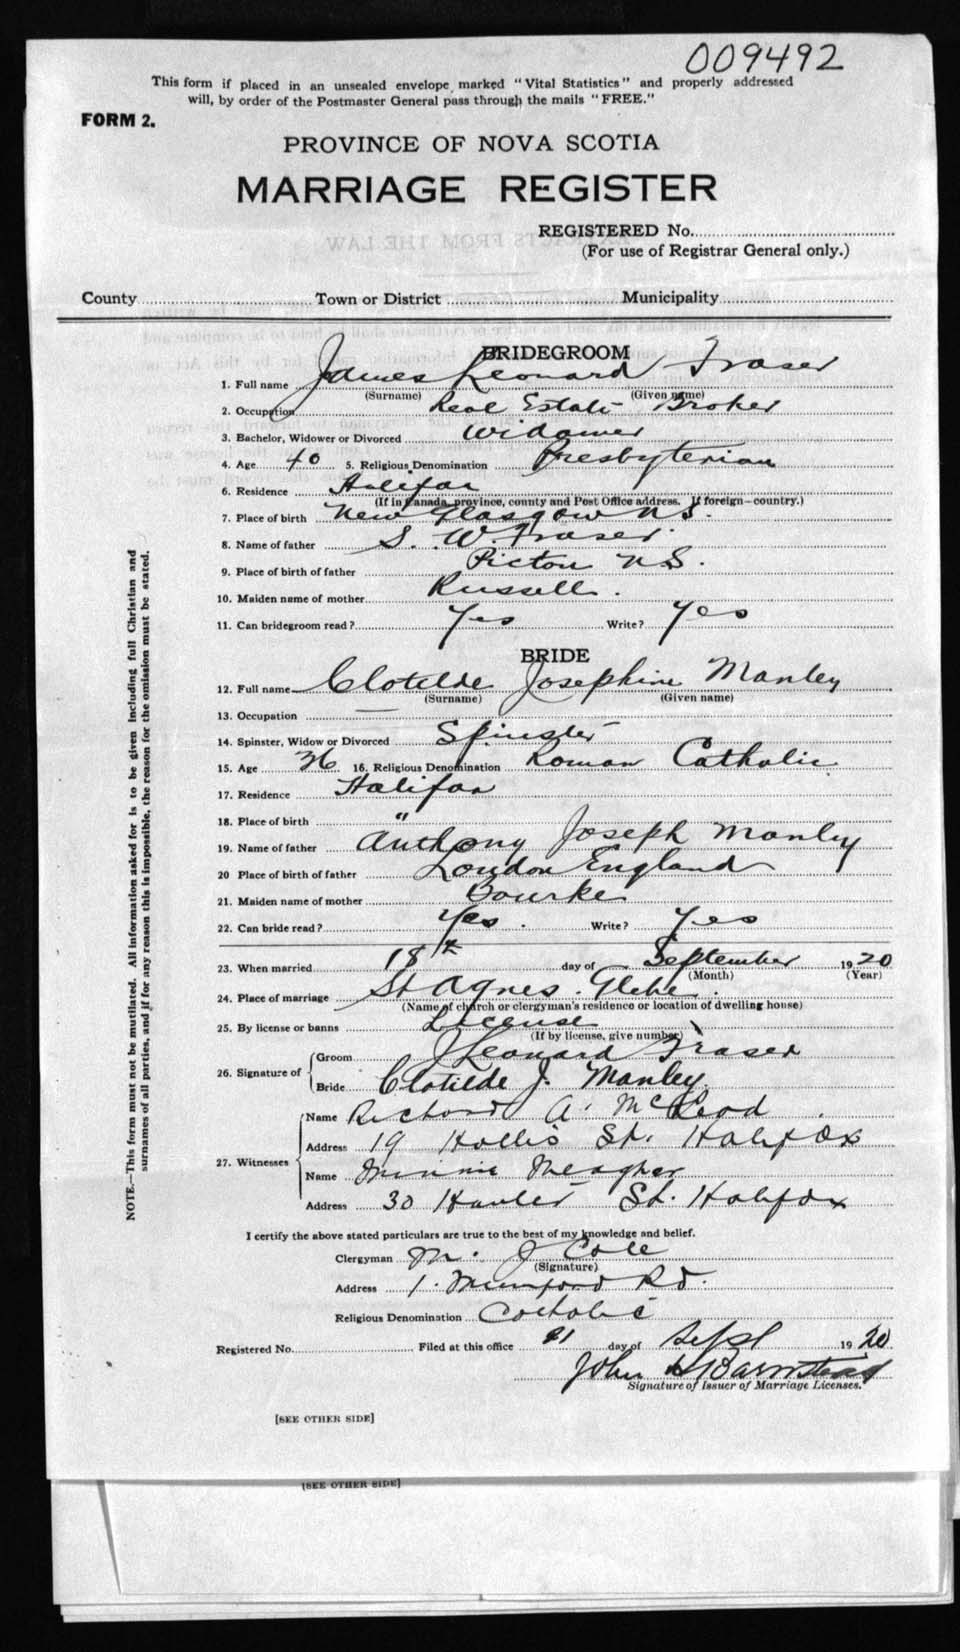 009492
This form if placed in an unsealed envelope marked "Vital Statistics" and properly addressed
will, by order of the Postmaster General pass through the mails "FREE."
FORM 2.
PROVINCE OF NOVA SCOTIA
MARRIAGE REGISTER
REGISTERED No.
(For use of Registrar General only.)
County Town or District Municipality
BRIDEGROOM
1. Full name James Leonard Fraser
(Surname) (Given name)
2. Occupation Real Estate Broker
3. Bachelor, Widower or Divorced Widower
4. Age 40 5. Religious Denomination Presbyterian
6. Residence Halifax
(If in Canada, province, county and Post Office address. If foreign—country.)
7. Place of birth New Glasgow N.S.
8. Name of father S. W. Fraser
9. Place of birth of father Pictou N.S.
10. Maiden name of mother Russell.
11. Can bridegroom read? Yes Write? Yes
BRIDE
12. Full name Clotilde Josephine Manley
(Surname) (Given name)
13. Occupation
14. Spinster, Widow or Divorced Spinster
15. Age 36 16. Religious Denomination Roman Catholic
17. Residence Halifax
18. Place of birth "
19. Name of father Anthony Joseph Manley
20 Place of birth of father London England
21. Maiden name of mother Bourke
22. Can bride read? Yes. Write? Yes
23. When married 18th day of September 1920
(Month) (Year)
24. Place of marriage St Agnes. Glebe.
(Name of church or clergyman's residence or location of dwelling house)
25. By license or banns License
(If by license, give number)
26. Signature of Groom J Leonard Fraser
Bride Clotilde J. Manley.
27. Witnesses Name Richard A. McLeod
Address 19 Hollis St. Halifax
Name Minnie Meagher
Address 30 St. Halifax
I certify the above stated particulars are true to the best of my knowledge and belief.
Clergyman M. J Cole
(Signature)
Address 1. Mumford Rd.
Religious Denomination Catholic
Registered No. Filed at this office 21 day of Sept 1920
John H Barnstead
Signature of Issuer of Marriage Licenses.
[SEE OTHER SIDE]
[SEE OTHER SIDE]
NOTE.—This form must not be mutilated. All information asked for is to be given including full Christian and
surnames of all parties, and if for any reason this is impossible, the reason for the omission must be stated.